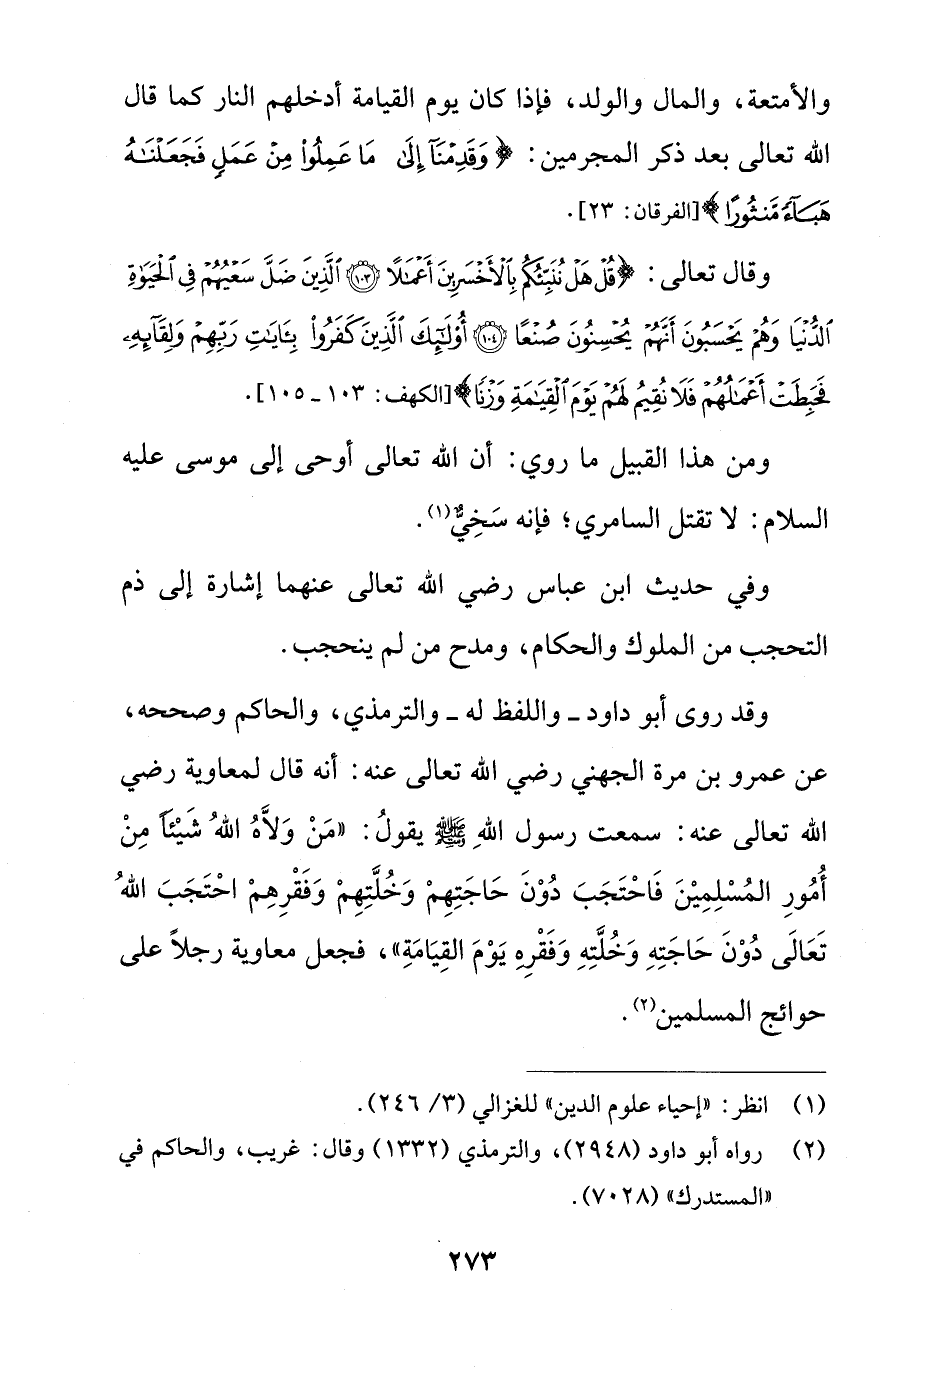 والأمتعة، والمال والولد، فإذا كان يوم القيامة أدخلهم النار كما قال
الله تعالى بعد ذكر المجرمين: ﴿ وَقَدِمْنَآ إِلَىٰ مَا عَمِلُوا۟ مِنْ عَمَلٍ فَجَعَلْنَـٰهُ
هَبَآءً مَّنثُورًا ﴾ [الفرقان: ٢٣].
وقال تعالى: ﴿ قُلْ هَلْ نُنَبِّئُكُم بِٱلْأَخْسَرِينَ أَعْمَـٰلًا ۝١٠٣ ٱلَّذِينَ ضَلَّ سَعْيُهُمْ فِى ٱلْحَيَوٰةِ
ٱلدُّنْيَا وَهُمْ يَحْسَبُونَ أَنَّهُمْ يُحْسِنُونَ صُنْعًا ۝١٠٤ أُو۟لَـٰٓئِكَ ٱلَّذِينَ كَفَرُوا۟ بِـَٔايَـٰتِ رَبِّهِمْ وَلِقَآئِهِۦ
فَحَبِطَتْ أَعْمَـٰلُهُمْ فَلَا نُقِيمُ لَهُمْ يَوْمَ ٱلْقِيَـٰمَةِ وَزْنًا ﴾ [الكهف: ١٠٣ ـ ١٠٥].
ومن هذا القبيل ما روي: أن الله تعالى أوحى إلى موسى عليه
السلام: لا تقتل السامري؛ فإنه سَخِيٌّ(١).
وفي حديث ابن عباس رضي الله تعالى عنهما إشارة إلى ذم
التحجب من الملوك والحكام، ومدح من لم ينحجب.
وقد روى أبو داود ـ واللفظ له ـ والترمذي، والحاكم وصححه،
عن عمرو بن مرة الجهني رضي الله تعالى عنه: أنه قال لمعاوية رضي
الله تعالى عنه: سمعت رسول اللهِ ﷺ يقولُ: «مَنْ وَلاَّهُ اللهُ شَيْئاً مِنْ
أُمُورِ المُسْلِمِيْنَ فَاحْتَجَبَ دُوْنَ حَاجَتِهِمْ وَخُلَّتِهِمْ وَفَقْرِهِمْ احْتَجَبَ اللهُ
تَعَالَى دُوْنَ حَاجَتِهِ وَخُلَّتِهِ وَفَقْرِهِ يَوْمَ القِيَامَةِ»، فجعل معاوية رجلاً على
حوائج المسلمين(٢).
(١) انظر: «إحياء علوم الدين» للغزالي (٣/ ٢٤٦).
(٢) رواه أبو داود (٢٩٤٨)، والترمذي (١٣٣٢) وقال: غريب، والحاكم في
«المستدرك» (٧٠٢٨).
٢٧٣